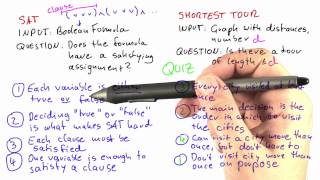 SAT
clause
(x ∨ v) ∧ (v v x) ∧ ...
INPUT: Boolean Formula
QUESTION: Does the formula
have a satisfying
assignment?
① Each variable is either
true or false
② Deciding "true" or "false"
is what makes SAT hard
③ Each clause must be
satisfied
④ One variable is enough to
satisfy a clause
SHORTEST TOUR
INPUT: Graph with distances,
number d
QUESTION: Is there a tour
of length ≤ d
QUIZ
Every
main decision is the
order in which to visit
the cities
④ Can visit a city more than
once, but don't have to
① Don't visit city more than
once on purpose